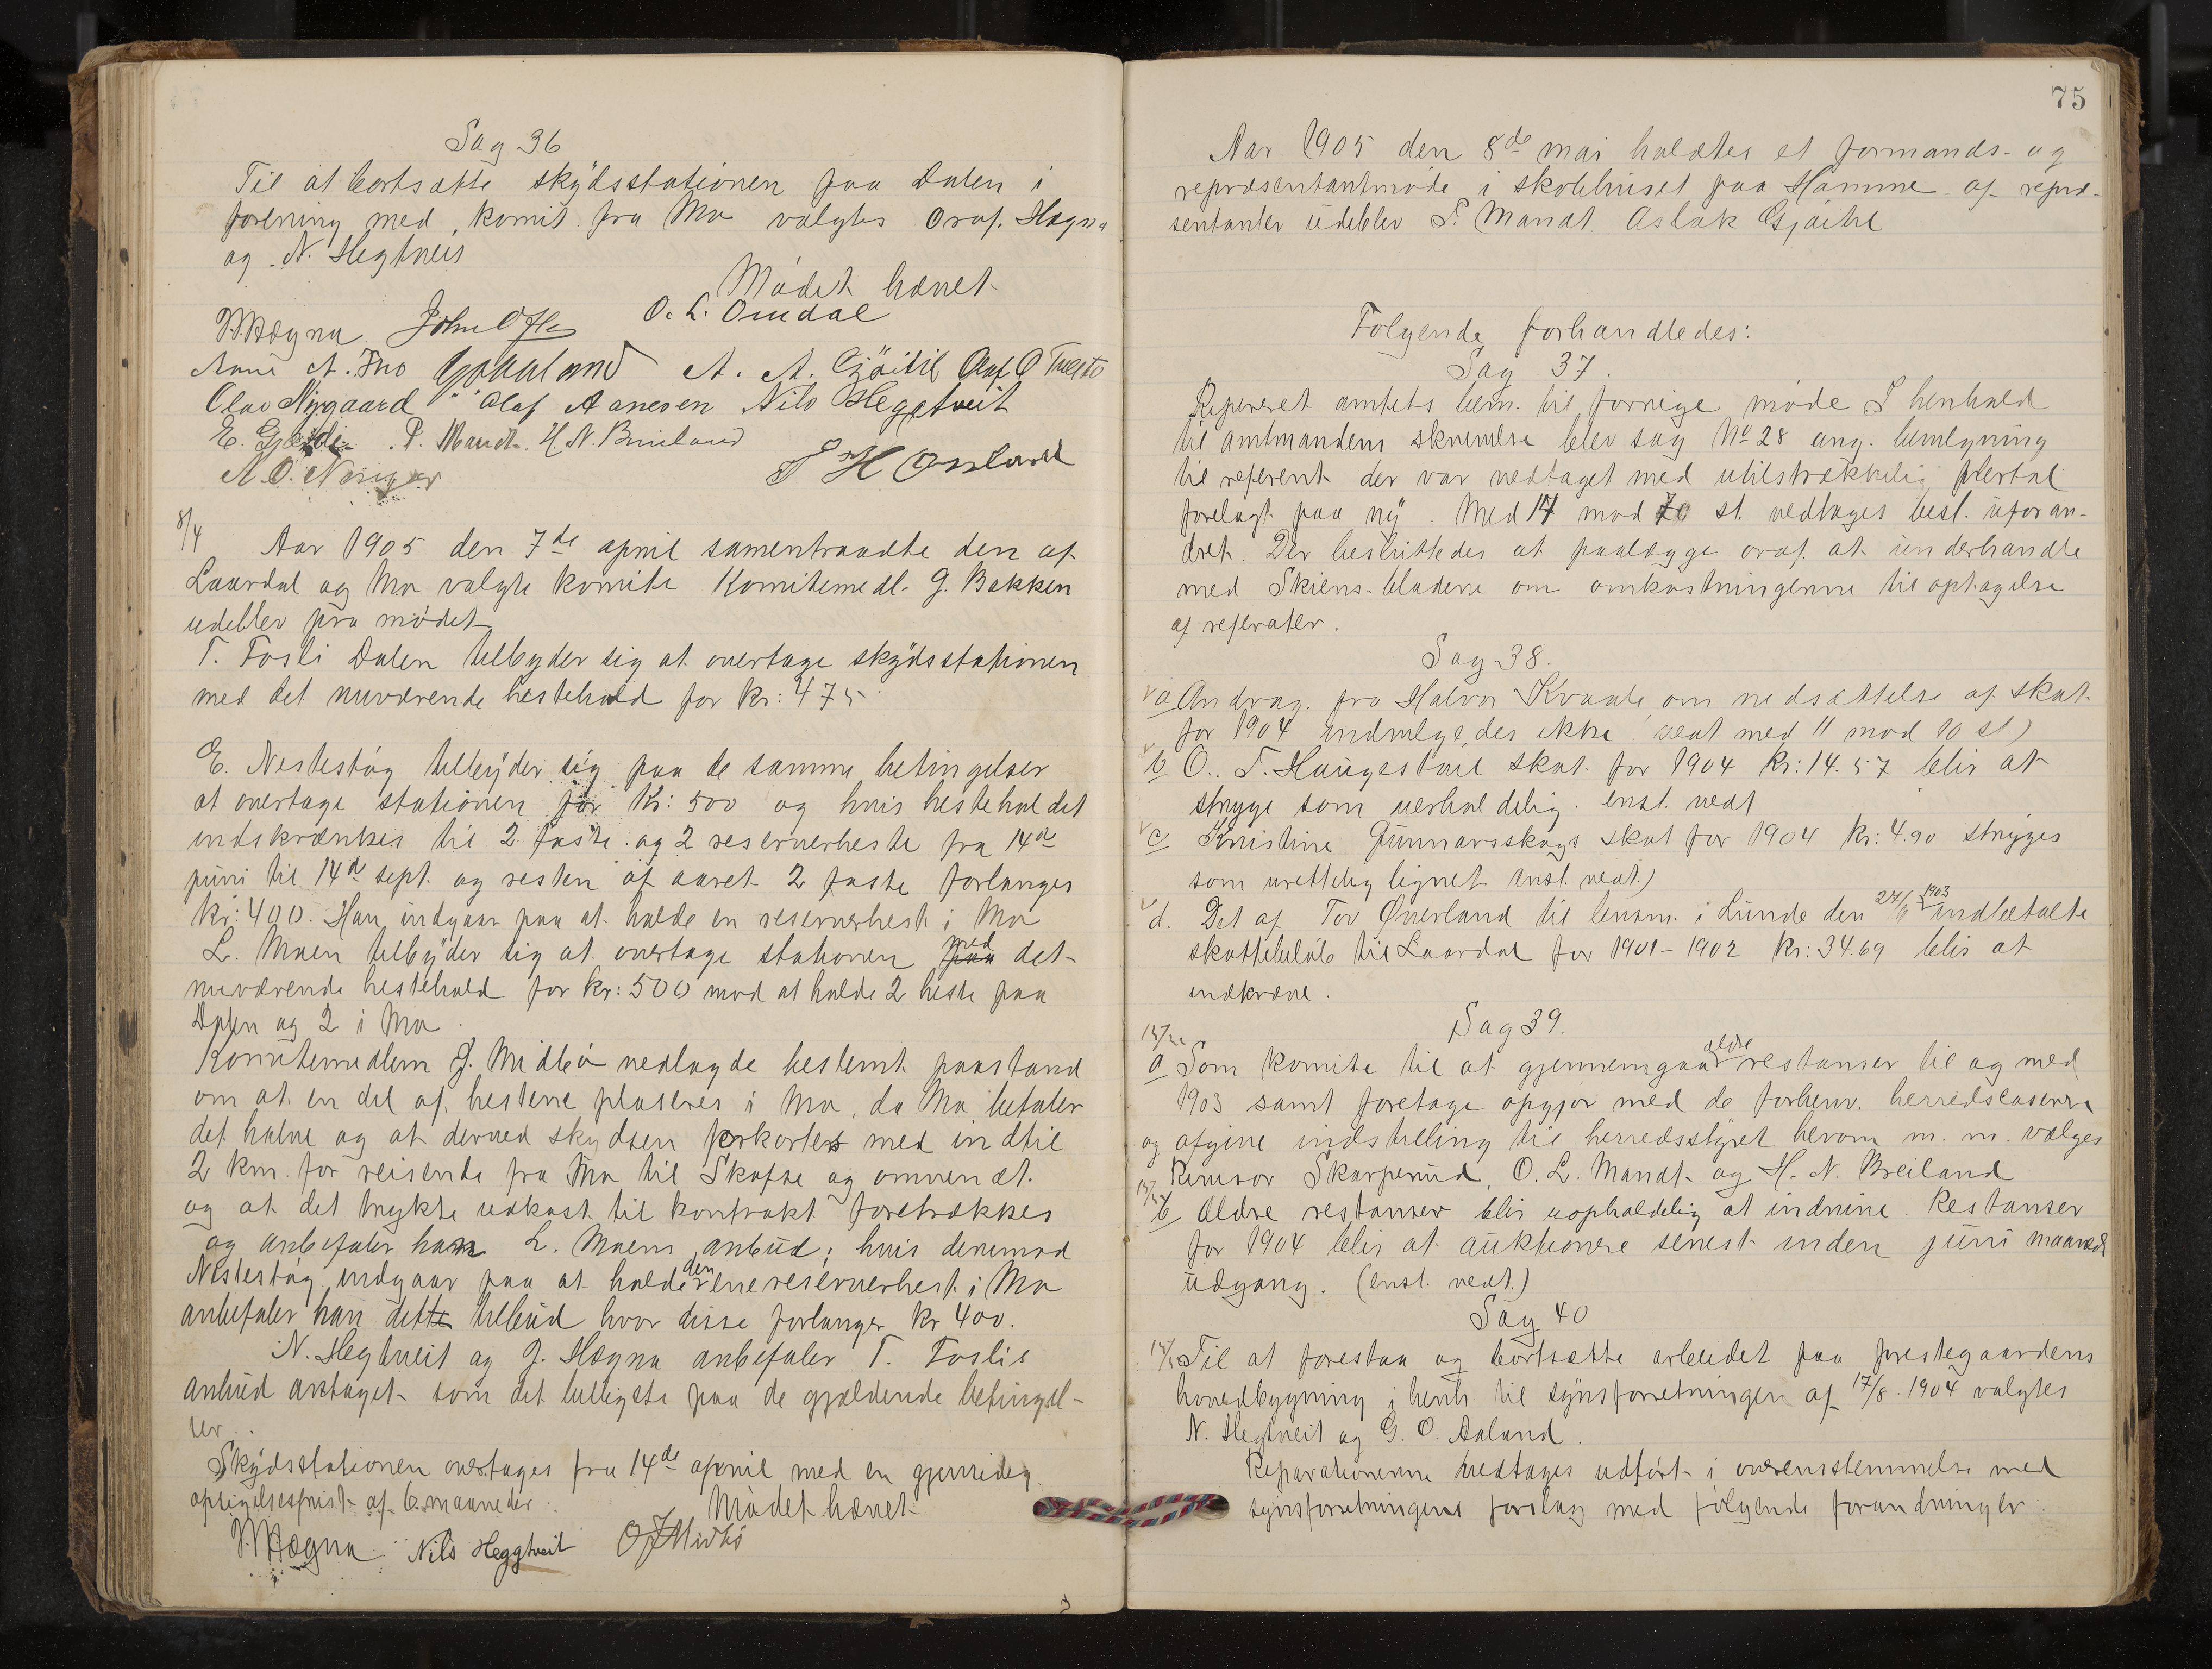 Sag 36
Til at bortsætte skydsstationen paa Dalen i
forening med komit. fra Mo valgtes oraf. Hægna
og N. Hegtveit
Mødet hævet
O. L. Omdal
Aani A. Mo A. A. Gjøitil Olaf O
Olav Nygaard Olaf Aanesen Nils Heggtveit
P. Mandt. H. N. Breiland
8/4
Aar 1905 den 7de april samentraadte den af
Laardal og Mo valgte komite Komitemedl. G. Bakken
udeblev fra mødet
T. Fosli Dalen tilbyder sig at overtage skydsstationen
med det nuværende hestehold for kr: 475
E. Nestestøg tilbyder sig paa de samme betingelser
at overtage stationen for Kr: 500 og hvis hesteholdet
indskrænkes til 2 faste og 2 reserverheste fra 14de
juni til 14de sept. og resten af aaret 2 faste forlanges
kr: 400. Han indgaar paa at holde en reserverhest i Mo
L. Moen tilbyder sig at overtage stationen med det
nuværende hestehold for kr: 500 mod at holde 2 heste paa
Dalen og 2 i Mo
Komitemedlem J. Midbø nedlagde bestemt paastand
om at en del af hestene plaseres i Mo, da Mo betaler
det halve og at derved skydsen forkortes med indtil
2 km. for reisende fra Mo til Skafse og omvendt.
og at det trykte udkast til kontrakt foretrækkes
og anbefaler han L. Moens anbud; hvis derimod
Nestestøg indgaar paa at holde den ene reserverhest i Mo
anbefaler han dette tilbud hvor disse forlanger kr 400.
N. Hegtveit og J. Hægna anbefaler T. Foslis
anbud antaget som det billigste paa de gjældende betingel-
ser.
Skydsstationen overtages fra 14de april med en gjensidig
opsigelsesfrist af 6 maaneder.
Mødet hævet
Hægna Nils Heggtveit O J Midbø
75
Aar 1905 den 8de mai holdtes et formands- og
repræsentantmøde i skolehuset paa Hamme af repræ-
sentanter udeblev T. Mandt. Aslak Gjøitil
Følgende forhandledes:
Sag 37.
Refereret amtets bem. til forrige møde I henhold
til amtmandens skrivelse blev sag No 28 ang. bevilgning
til referent der var vedtaget med utilstrækkelig flertal
forelagt paa ny. Med 14 mod st. vedtages best. uforan-
dret. Der besluttedes at paalægge oraf. at underhandle
med Skiens-bladene om omkostningerne til optagelse
af referater.
Sag 38.
a Andrag. fra Halvor Kvaale om nedsættelse af skat
for 1904 indvilgedes ikke (vedt med 11 mod 10 st.)
b O. T. Haugestøil skat for 1904 Kr: 14.57 blir at
stryge som uerholdelig. enst. vedt
c Kristine Gunnarsskogs skat for 1904 Kr: 4.90 stryges
som urettelig lignet (enst. vedt.)
d. Det af Tov Øverland til lensm. i Lunde den 24/ 1903 indbetalte
skattebeløb til Laardal for 1901-1902 Kr: 34.69 blir at
indkræve.
Sag 39.
a Som komite til at gjennemgaa ældre restanser til og med
1903 samt foretage opgjør med de forhenv. herredskaserere
og afgive indstilling til herredsstyret herom m. m. vælges
Revisor Skarperud, O. L. Mandt og H. N. Breiland
b Ældre restanser blir uopholdelig at inddrive. Restanser
for 1904 blir at auktionere senest inden juni maaneds
udgang. (enst. vedt.)
Sag 40
Til at forestaa og bortsætte arbeidet paa prestegaardens
hovedbygning i henh. til synsforretningen af 17/8. 1904 valgtes
N. Hegtveit og G. O. Aaland.
Reparationerne vedtages udført i overensstemmelse med
synsforretningens forslag med følgende forandringer: